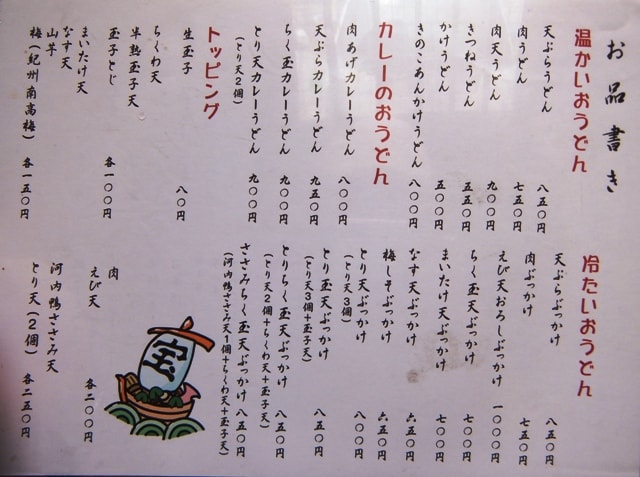 お品書き
温かいおうどん
天ぷらうどん 八五〇円
肉うどん 七五〇円
肉天うどん 九〇〇円
きつねうどん 五五〇円
かけうどん 五〇〇円
きのこあんかけうどん 八〇〇円
カレーのおうどん
肉あげカレーうどん 八〇〇円
天ぷらカレーうどん 九五〇円
ちく玉カレーうどん 九〇〇円
とり天カレーうどん 九〇〇円
(とり天2個)
トッピング
生玉子 八〇円
ちくわ天
半熟玉子天
玉子とじ 各一〇〇円
まいたけ天
なす天
山芋
梅(紀州南高梅) 各一五〇円
冷たいおうどん
天ぷらぶっかけ 八五〇円
肉ぶっかけ 七五〇円
えび天おろしぶっかけ 一〇〇〇円
ちく玉天ぶっかけ 七〇〇円
まいたけ天ぶっかけ 七〇〇円
なす天ぶっかけ 六五〇円
梅しそぶっかけ 六五〇円
とり天ぶっかけ 八〇〇円
(とり天3個)
とり玉天ぶっかけ 八五〇円
(とり天3個+玉子天)
とりちく玉天ぶっかけ 八五〇円
(とり天2個+ちくわ天+玉子天)
ささみちく玉天ぶっかけ 八五〇円
(河内鴨ささみ天1個+ちくわ天+玉子天)
宝
肉
えび天 各二〇〇円
河内鴨ささみ天
とり天(2個) 各二五〇円